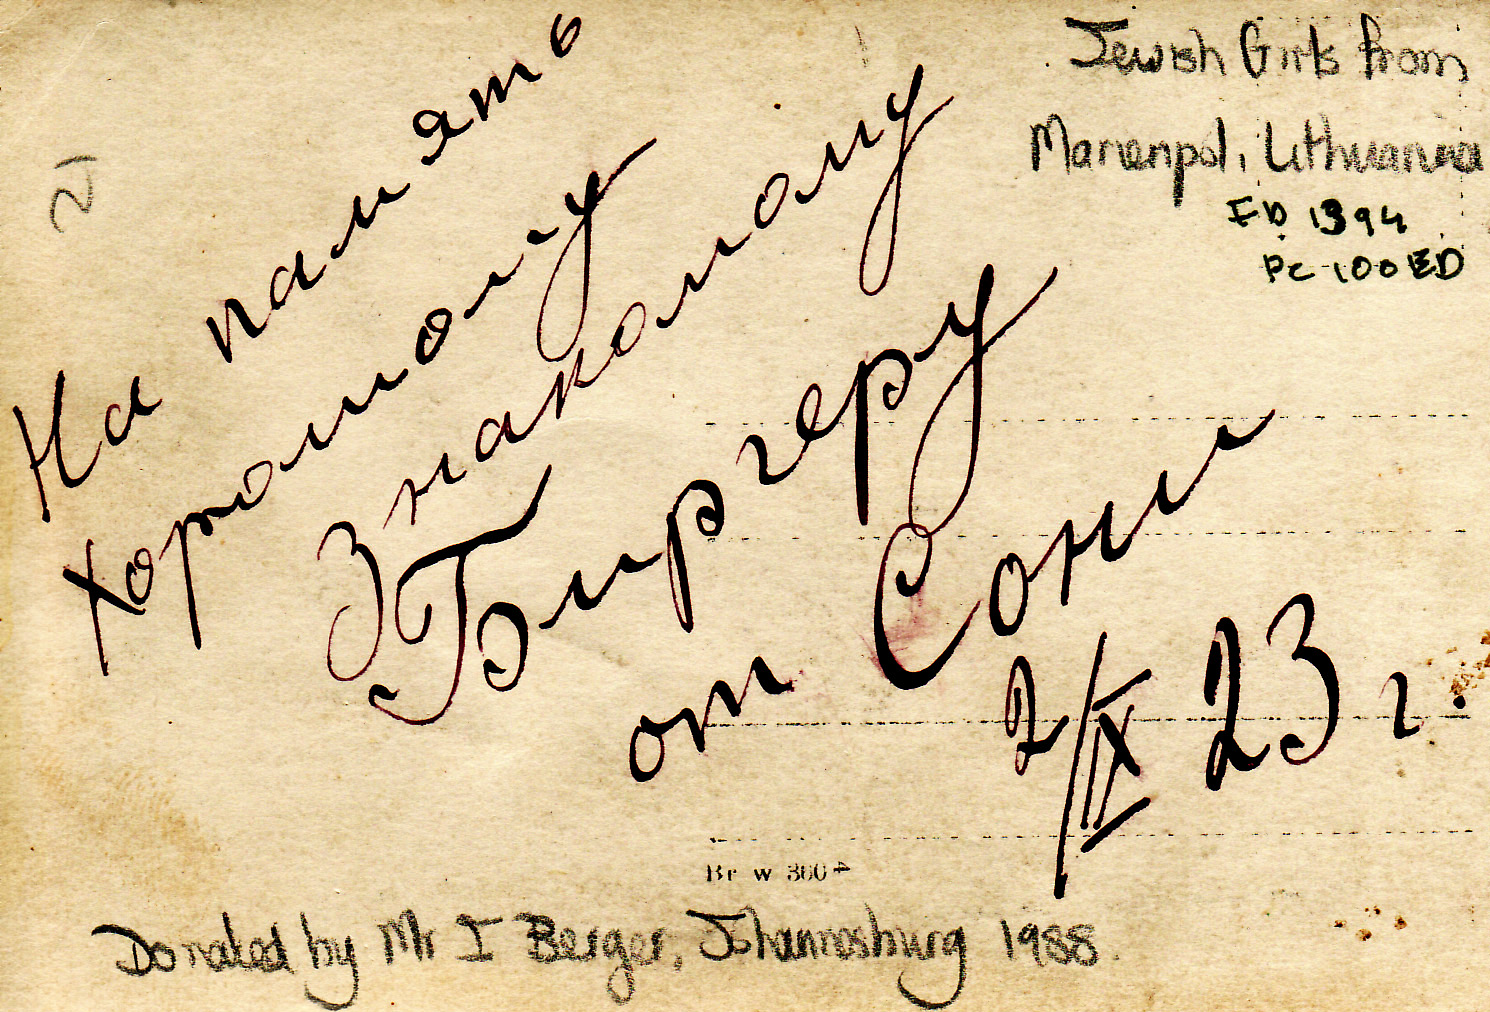 На память
Хорошому
Знакомому
Биргеру
от Сони
2/IX 23 г.
Jewish Girls from
Mariempol, Lithuania
ED 1394
PC 100 ED
Br w 360
Donated by Mr I Berger, Johannesburg 1988.